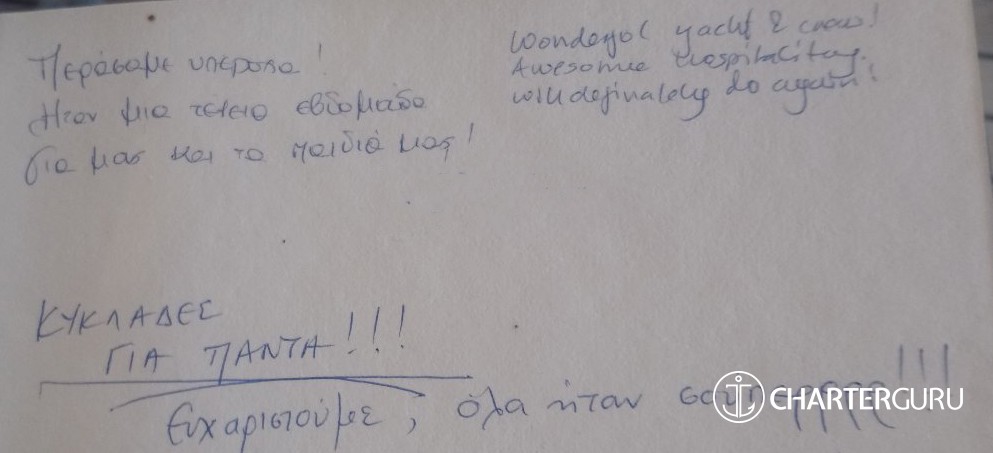 Περάσαμε υπέροχα!
Ήταν μια τέλεια εβδομάδα
Για μας και τα παιδιά μας!
Wonderful yacht & crew!
Awesome Hospitality.
will definately do again!
ΚΥΚΛΑΔΕΣ
ΓΙΑ ΠΑΝΤΑ!!!
Ευχαριστούμε, όλα ήταν !!!
CHARTERGURU